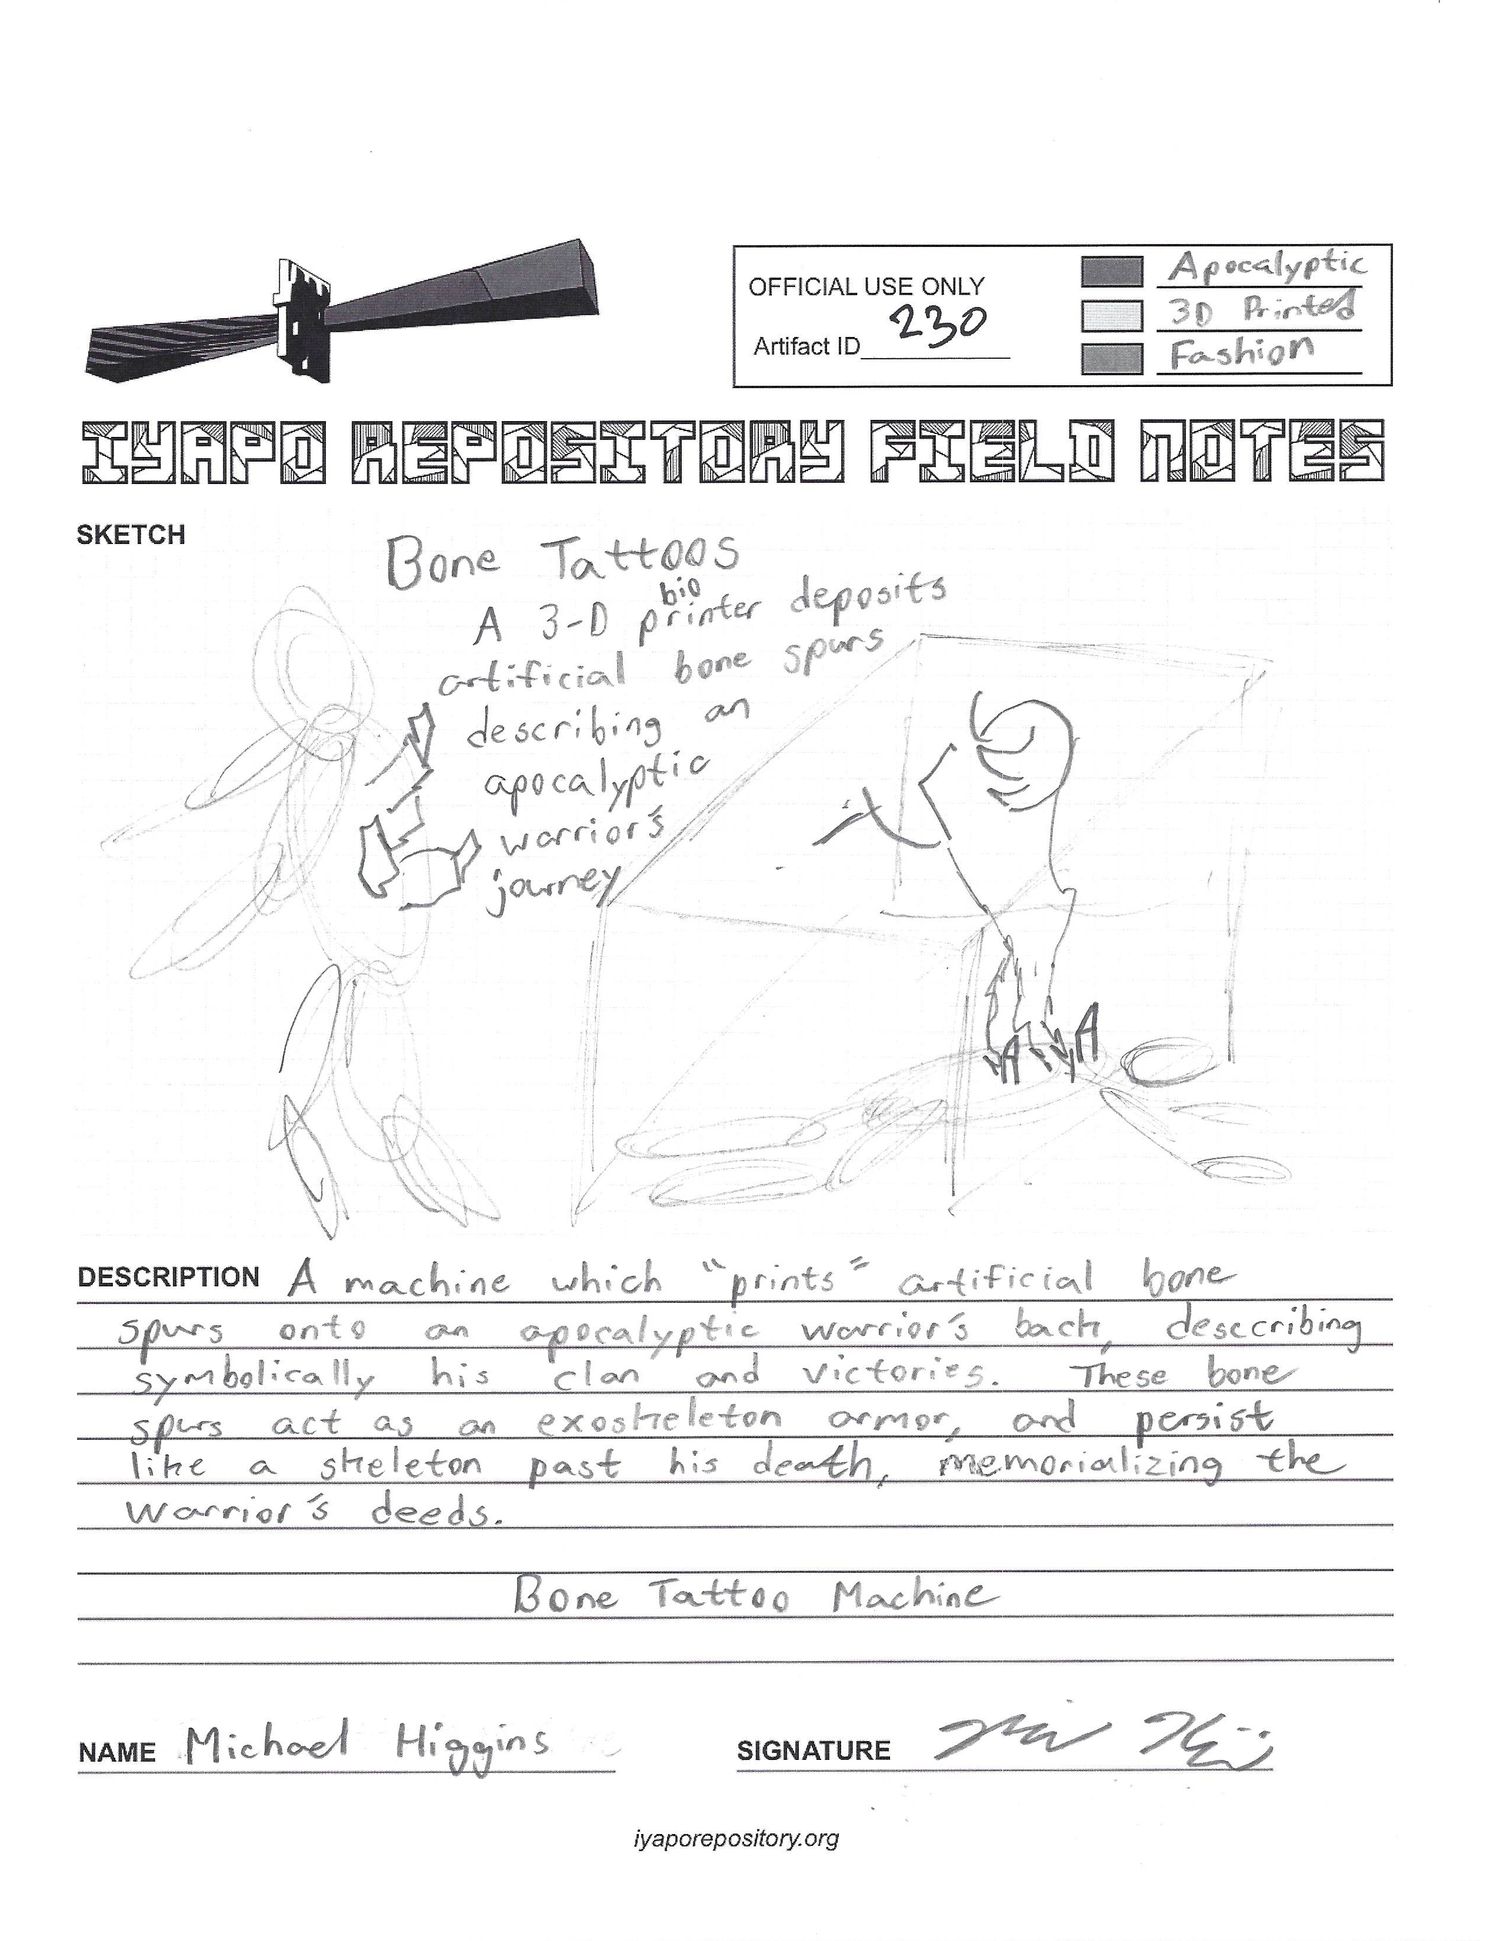 OFFICIAL USE ONLY
Artifact ID 230
Apocalyptic
3D Printed
Fashion
IYAPO REPOSITORY FIELD NOTES
SKETCH
Bone Tattoos
bio
A 3-D printer deposits
artificial bone spurs
describing an
apocalyptic
warrior's
journey
DESCRIPTION A machine which "prints" artificial bone
spurs onto an apocalyptic warrior's back, desccribing
symbolically his clan and victories. These bone
spurs act as an exoskeleton armor, and persist
like a skeleton past his death, memorializing the
warrior's deeds.
Bone Tattoo Machine
NAME Michael Higgins
SIGNATURE
iyaporepository.org